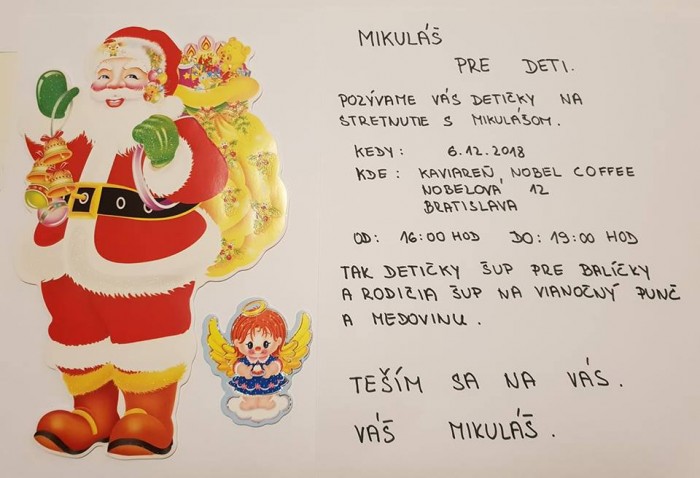 MIKULÁŠ
PRE DETI.
POZÝVAME VÁS DETIČKY NA
STRETNUTIE S MIKULÁŠOM.
KEDY: 6.12.2018
KDE: KAVIAREŇ, NOBEL COFFEE
NOBELOVA 12
BRATISLAVA
OD: 16:00 HOD DO: 19:00 HOD
TAK DETIČKY ŠUP PRE BALÍČKY
A RODIČIA ŠUP NA VIANOČNÝ PUNČ
A MEDOVINU.
TEŠÍM SA NA VÁS.
VÁŠ MIKULÁŠ.